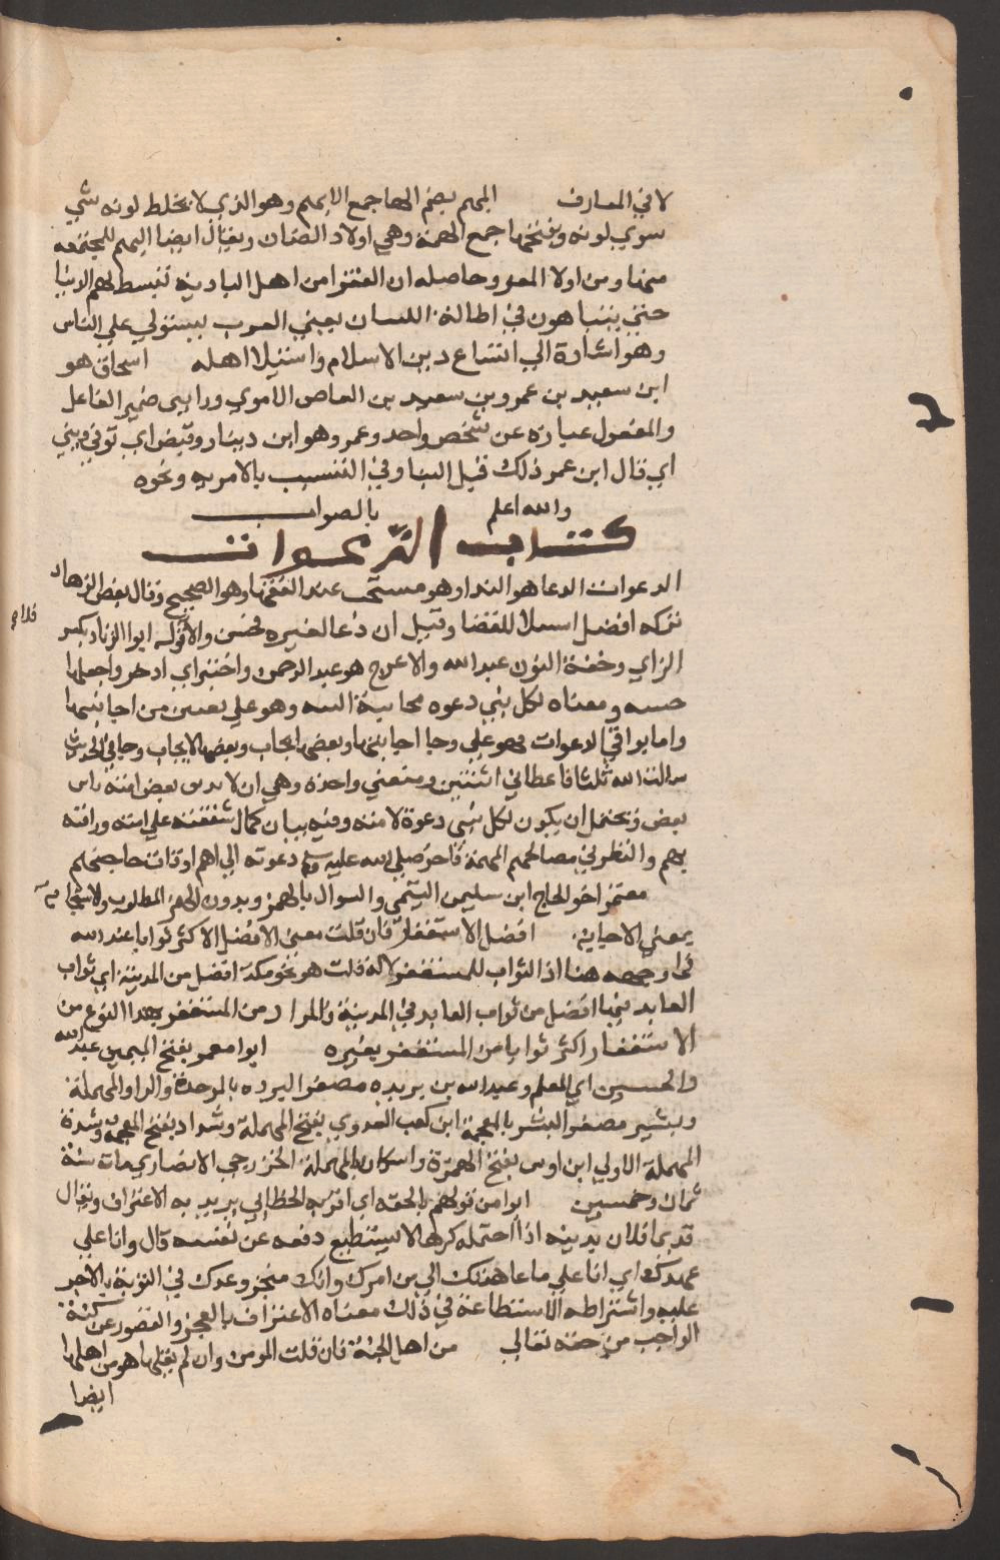 لا في المعارف البهم بضم الها جمع الابهم وهو الذي لا يخلط لونه شي
سوي لونه وبفتحها جمع البهمة وهي اولاد الضان ويقال ايضا البهم للمجتمعة
منها ومن اولاد المعز وحاصله ان الفقرا من اهل البادية تبسط لهم الدنيا
حتي يتباهون في اطالة البنيان يعني العرب يستولي علي الناس
وهو اشارة الي اتساع دين الاسلام واستيلا اهله اسحاق هو
ابن سعيد بن عمرو بن سعيد بن العاص الاموي ورايتني ضمير الفاعل
والمفعول عبارة عن شخص واحد وعمرو هو ابن دينار وقبض اي توفي وبيني
اي قال ابن عمر ذلك قبل البنا وفي التنسيب بالامريه ونحوه
والله اعلم بالصواب
كتاب الدعوات
الدعوات الدعا هو الندا وهو مستحب عند الفقها وهو الصحيح وقال بعض الزهاد
تركه افضل استسلاما للقضا وقيل ان دعا لغيره فحسن والا فلا قوله ابوا الزناد بكسر
الزاي وخفة النون عبد الله والاعرج هو عبد الرحمن واختبي اي ادخر واجعلها
خبيه ومعناه لكل نبي دعوه مجابية البته وهو علي يقين من اجابتها
واما بواقي الدعوات فهو علي رجا اجابتها وبعضها يجاب وبعضها لا يجاب وجا في الحديث
سالت الله ثلثا فاعطاني اثنتين ومنعني واحدة وهي ان لا يذيق بعض امته باس
بعض ويحتمل ان يكون لكل نبي دعوة لامته وفيه بيان كمال شفقته علي امته ورافته
بهم والنظر في مصالحهم المهمة فاخر صلي الله عليه وسلم دعوته الي اهم اوقات حاجتهم
معتمر اخو الحاج ابن سليمن التيمي والسوال بالهمز وبدون الهمز المطلوب والاستجابة
بمعني الاجابة افضل الاستغفار فان قلت معني الافضل الاكثر ثوابا عند الله
فما وجهه هنا اذ الثواب للمستغفر لا له قلت هو نحو مكة افضل من المدينة اي ثواب
العابد فيها افضل من ثواب العابد في المدينة والمراد من المستغفر بهذا النوع من
الاستغفار اكثر ثوابا من المستغفر بغيره ابوا معمر بفتح الميمين عبد الله
والحسين اي المعلم وعبد الله بن بريده مصغر البرده بالموحدة والرا والمهملة
وبشير مصغر البشر بالمعجمة ابن كعب العدوي بفتح المهملة وشداد بفتح المعجمة وشدة
المهملة الاولي ابن اوس بفتح الهمزة واسكان المهملة الخزرجي الانصاري مات سنة
ثمان وخمسين ابوا من قولهم بالحقه اي اقر به الخطابي يريد به الاعتراف ويقال
قد با فلان بدينه اذا احتمله كرها لا يستطيع دفعه عن نفسه قال وانا علي
عهدك اي انا علي ما عاهدتك الي من امرك وانك منجز وعدك في التوبة بالاجر
عليه واشتراطه الاستطاعة في ذلك معناه الاعتراف بالعجز والقصور عن كنه
الواجب من حقه تعالي من اهل الجنة فان قلت المومن وان لم يقلها هو من اهلها
ايضا